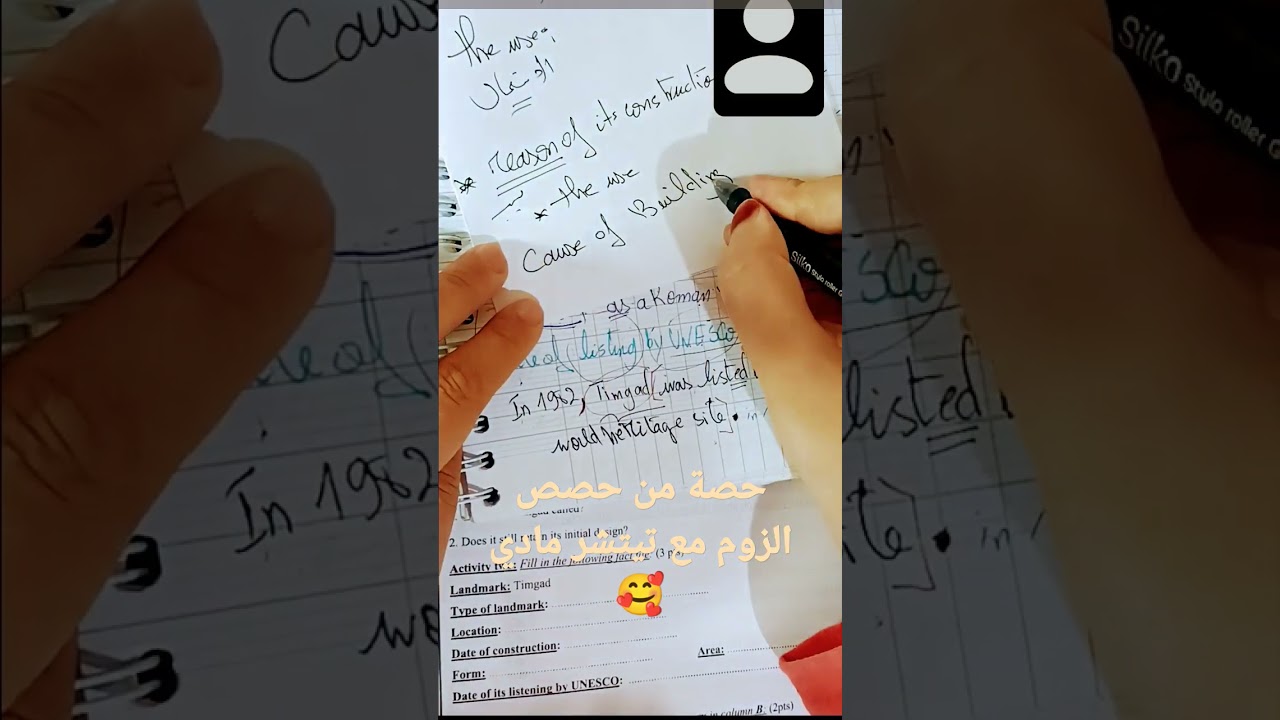 the use.
* reason of its construction
* the use
Cause of Building
Silko stylo roller
as a Roman
listing by UNESCO
In 1982, Timgad was listed
world heritage site.
حصة من حصص
الزوم مع تيتشر مادي
2. Does it still retain its initial design?
Fill in the following fact (3 pts)
Landmark: Timgad
Type of landmark:
Location:
Date of construction:
Area:
Form:
Date of its listening by UNESCO:
in column B. (2pts)